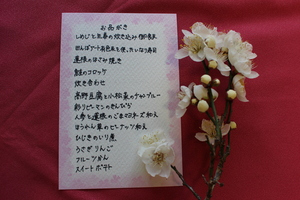 お品がき
しめじと生姜の炊き込み御飯
蓮根のはさみ焼き
鮭のコロッケ
炊き合わせ
高野豆腐と小松菜のチャンプルー
彩りピーマンのきんぴら
人参と蓮根のごまマヨネーズ和え
ほうれん草のピーナッツ和え
ひじきのいり煮
うさぎりんご
フルーツかん
スイートポテト